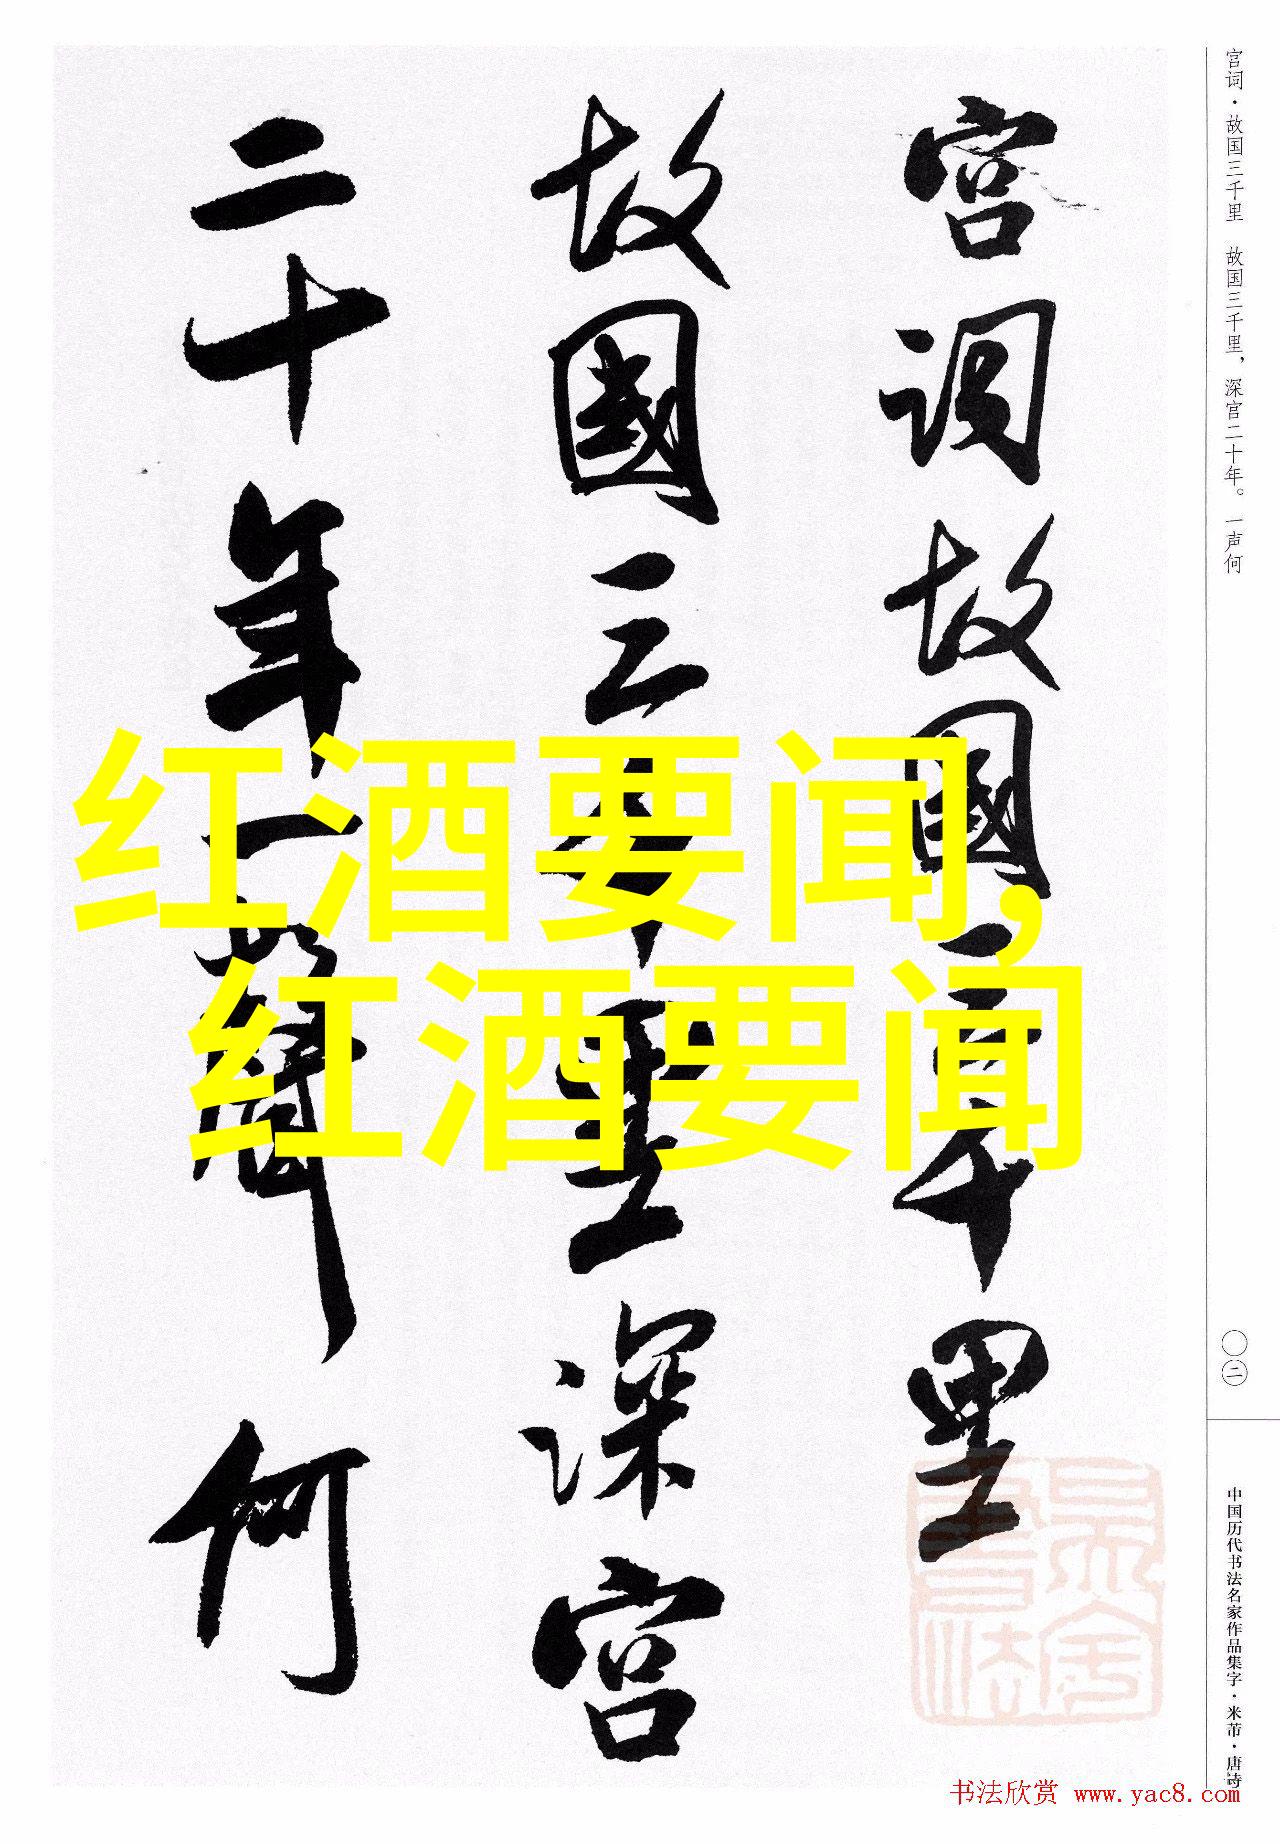 宫词故國三千里
故國三千里深宫
二十年一聲何
红酒要闻,
红酒要闻
宫词·故国三千里 故国三千里，深宫二十年。一声何
〇二
中国历代书法名家作品集字·米芾·唐诗
书法欣赏 www.yac8.com